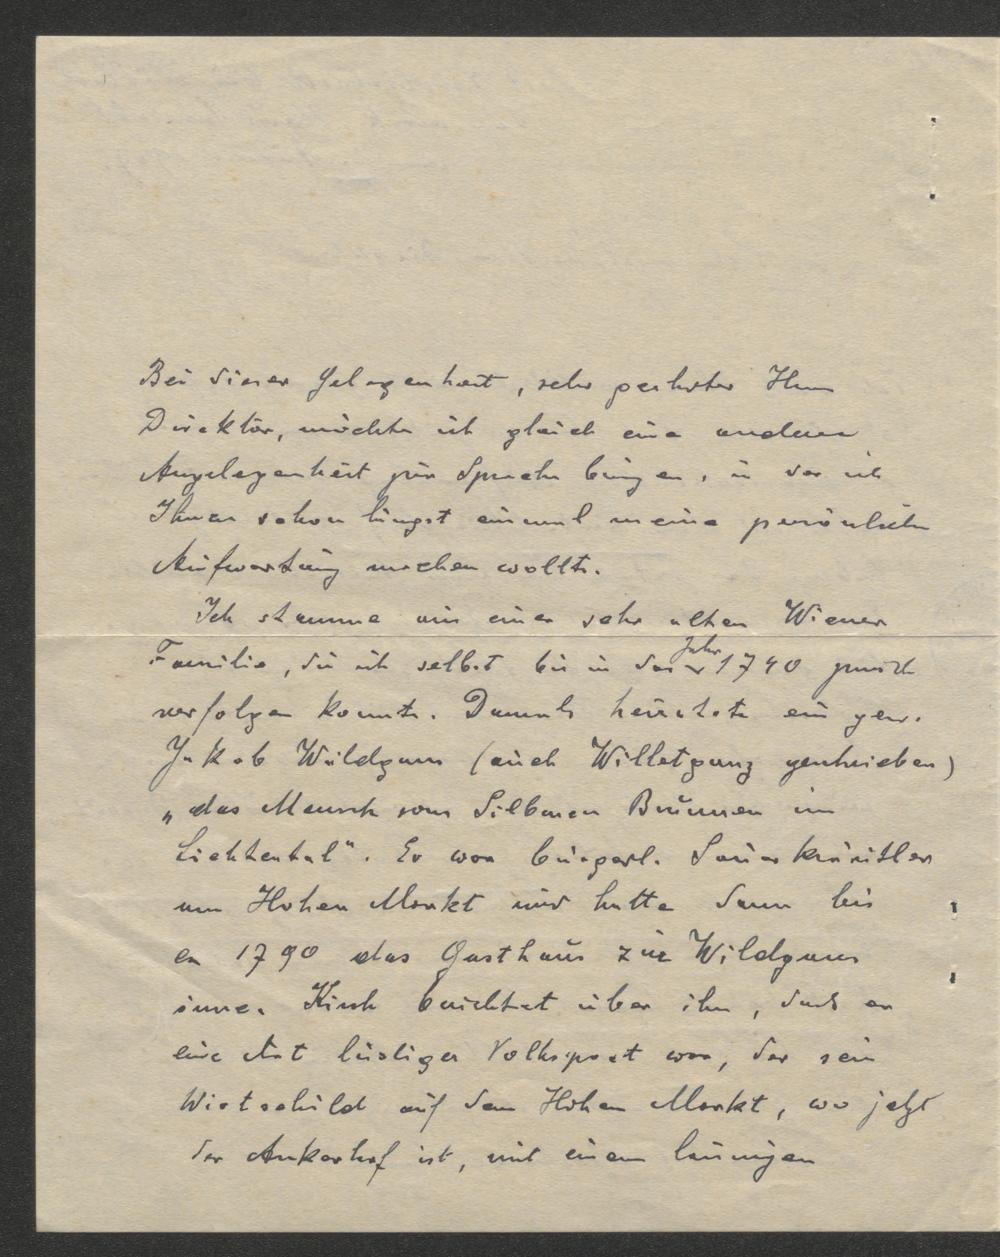 Bei dieser Gelegenheit, sehr geehrter Herr
Direktor, möchte ich gleich eine andere
Angelegenheit zur Sprache bringen, in der ich
Ihnen schon längst einmal meine persönliche
Aufwartung machen wollte.
Ich stamme aus einer sehr alten Wiener
Familie, die ich selbst bis in das Jahr 1740 zurück
verfolgen konnte. Damals heiratete ein gew.
Jakob Wildgans (auch Willetganz geschrieben)
„das Mensch vom Silbernen Brunnen im
Liechtental". Er war bürgerl. Sauerkräutler
am Hohen Markt und hatte dann bis
ca 1790 das Gasthaus zur Wildgans
inne. Kisch berichtet über ihn, daß er
eine Art lustiger Volkspoet war, der sein
Wirtschild auf dem Hohen Markt, wo jetzt
der Ankerhof ist, mit einem launigen